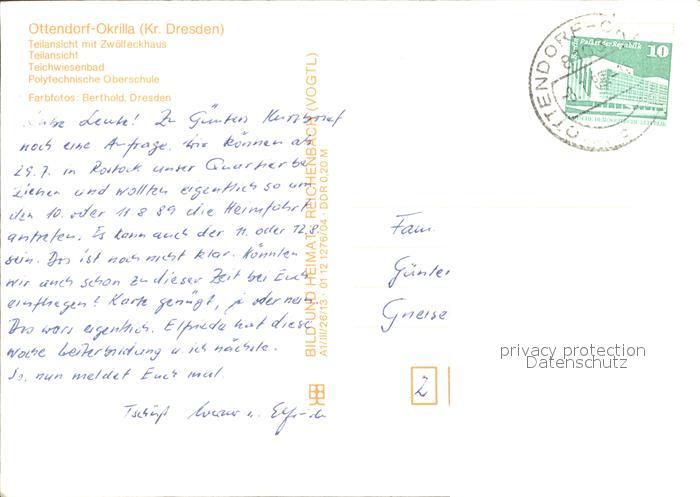 Ottendorf-Okrilla (Kr. Dresden)
Teilansicht mit Zwölfeckhaus
Teilansicht
Teichwiesenbad
Polytechnische Oberschule
Farbfotos: Berthold, Dresden
Liebe Leute! Zu Günters Kurzbrief
noch eine Anfrage. Wir können ab
29.7. in Rostock unser Quartier be-
ziehen und wollten eigentlich so um
den 10. oder 11.8.89 die Heimfahrt
antreten. Es kann auch der 11. oder 12.8.
sein. Das ist noch nicht klar. Könnten
wir auch schon zu dieser Zeit bei Euch
einfliegen? Karte genügt, ja oder nein.
Das wars eigentlich. Elfriede hat diese
Woche Weiterbildung u. ich nächste.
So, nun meldet Euch mal.
Tschüß Werner u. Elfriede
BILD UND HEIMAT REICHENBACH (VOGTL)
A1/III/26/13 · 01 12 1276/04 · DDR 0,20 M
OTTENDORF-OK
Palast der Republik
10
Fam.
Günter
Gneise
privacy protection
Datenschutz
Z